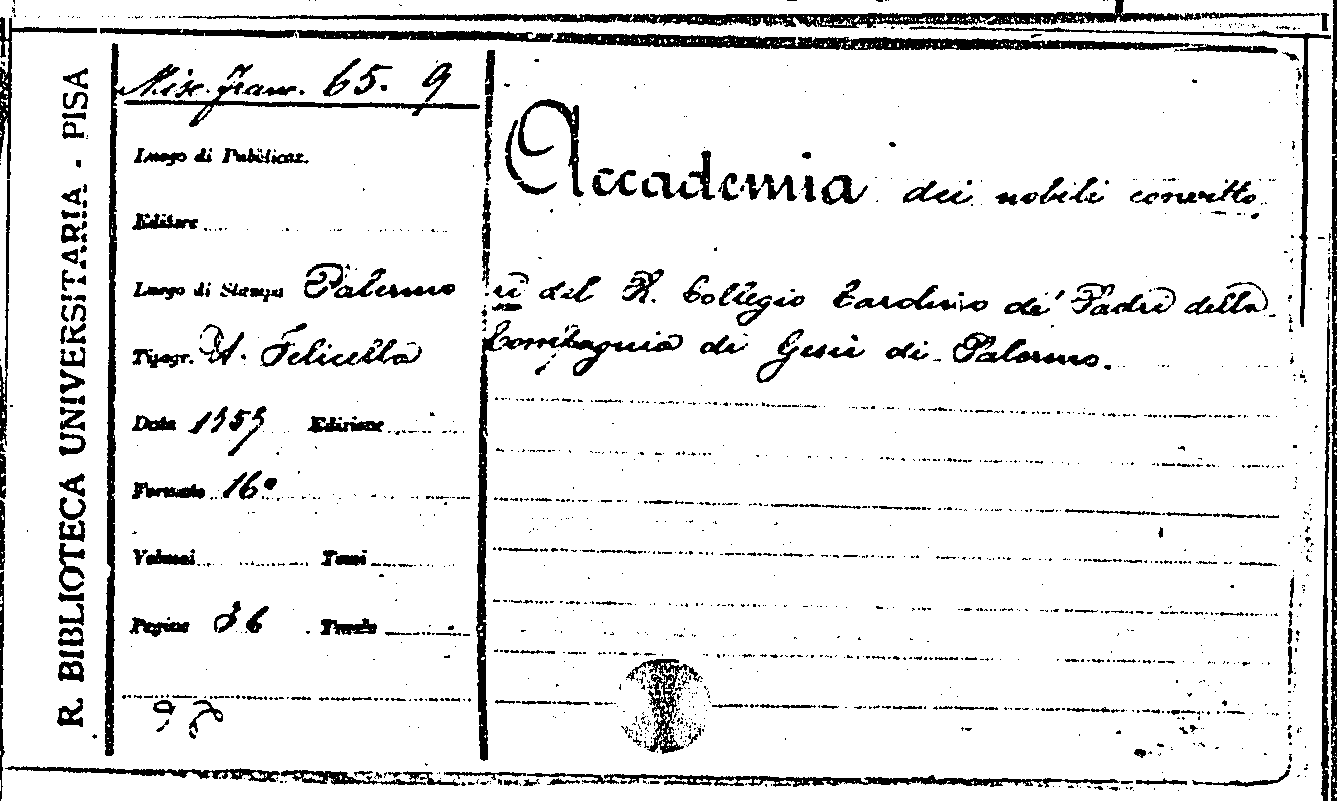 R. BIBLIOTECA UNIVERSITARIA - PISA
Misc. franc. 65. 9
Luogo di Pubblicaz.
Editore
Luogo di Stampa Palermo
Tipogr. A. Felicella
Data 1757 Edizione
Formato 16º
Volumi Tomi
Pagine 36 Tavole
Accademia dei nobili convitto
ri del R. Collegio Carolino de' Padri della
Compagnia di Gesù di Palermo.